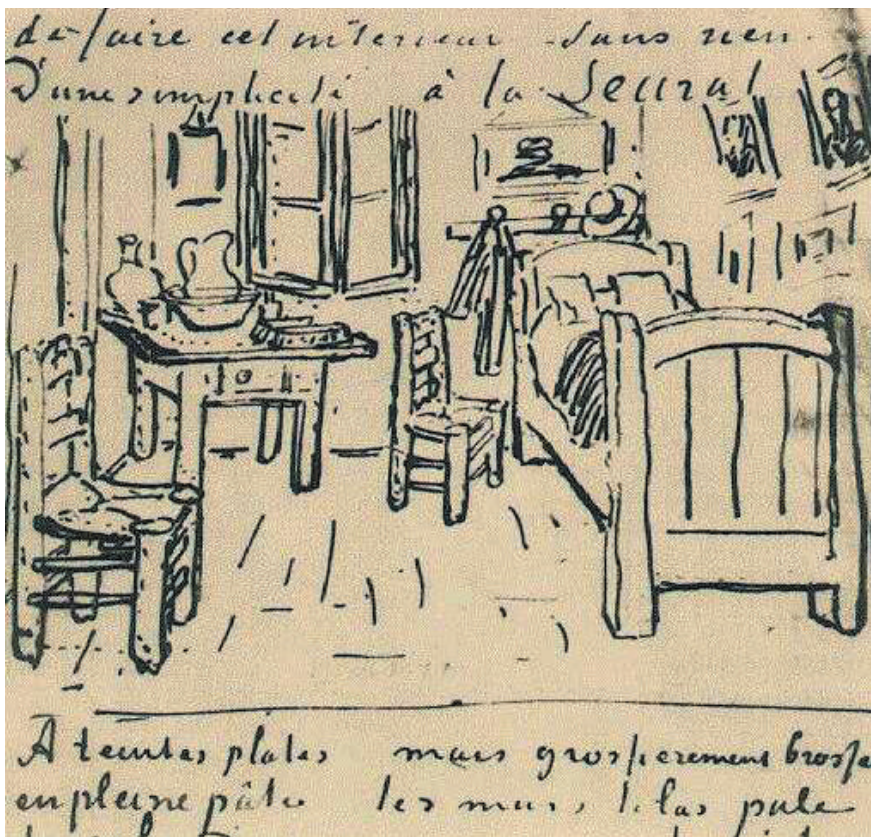 de faire cet intérieur sans rien.
D'une simplicité à la Seurat
A teintes plates mais grossierement brosse
en pleine pâte les murs lilas pale